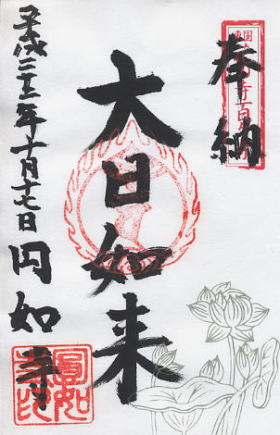 奉納
大日如来
平成二十二年十月十七日 円如寺
圓如